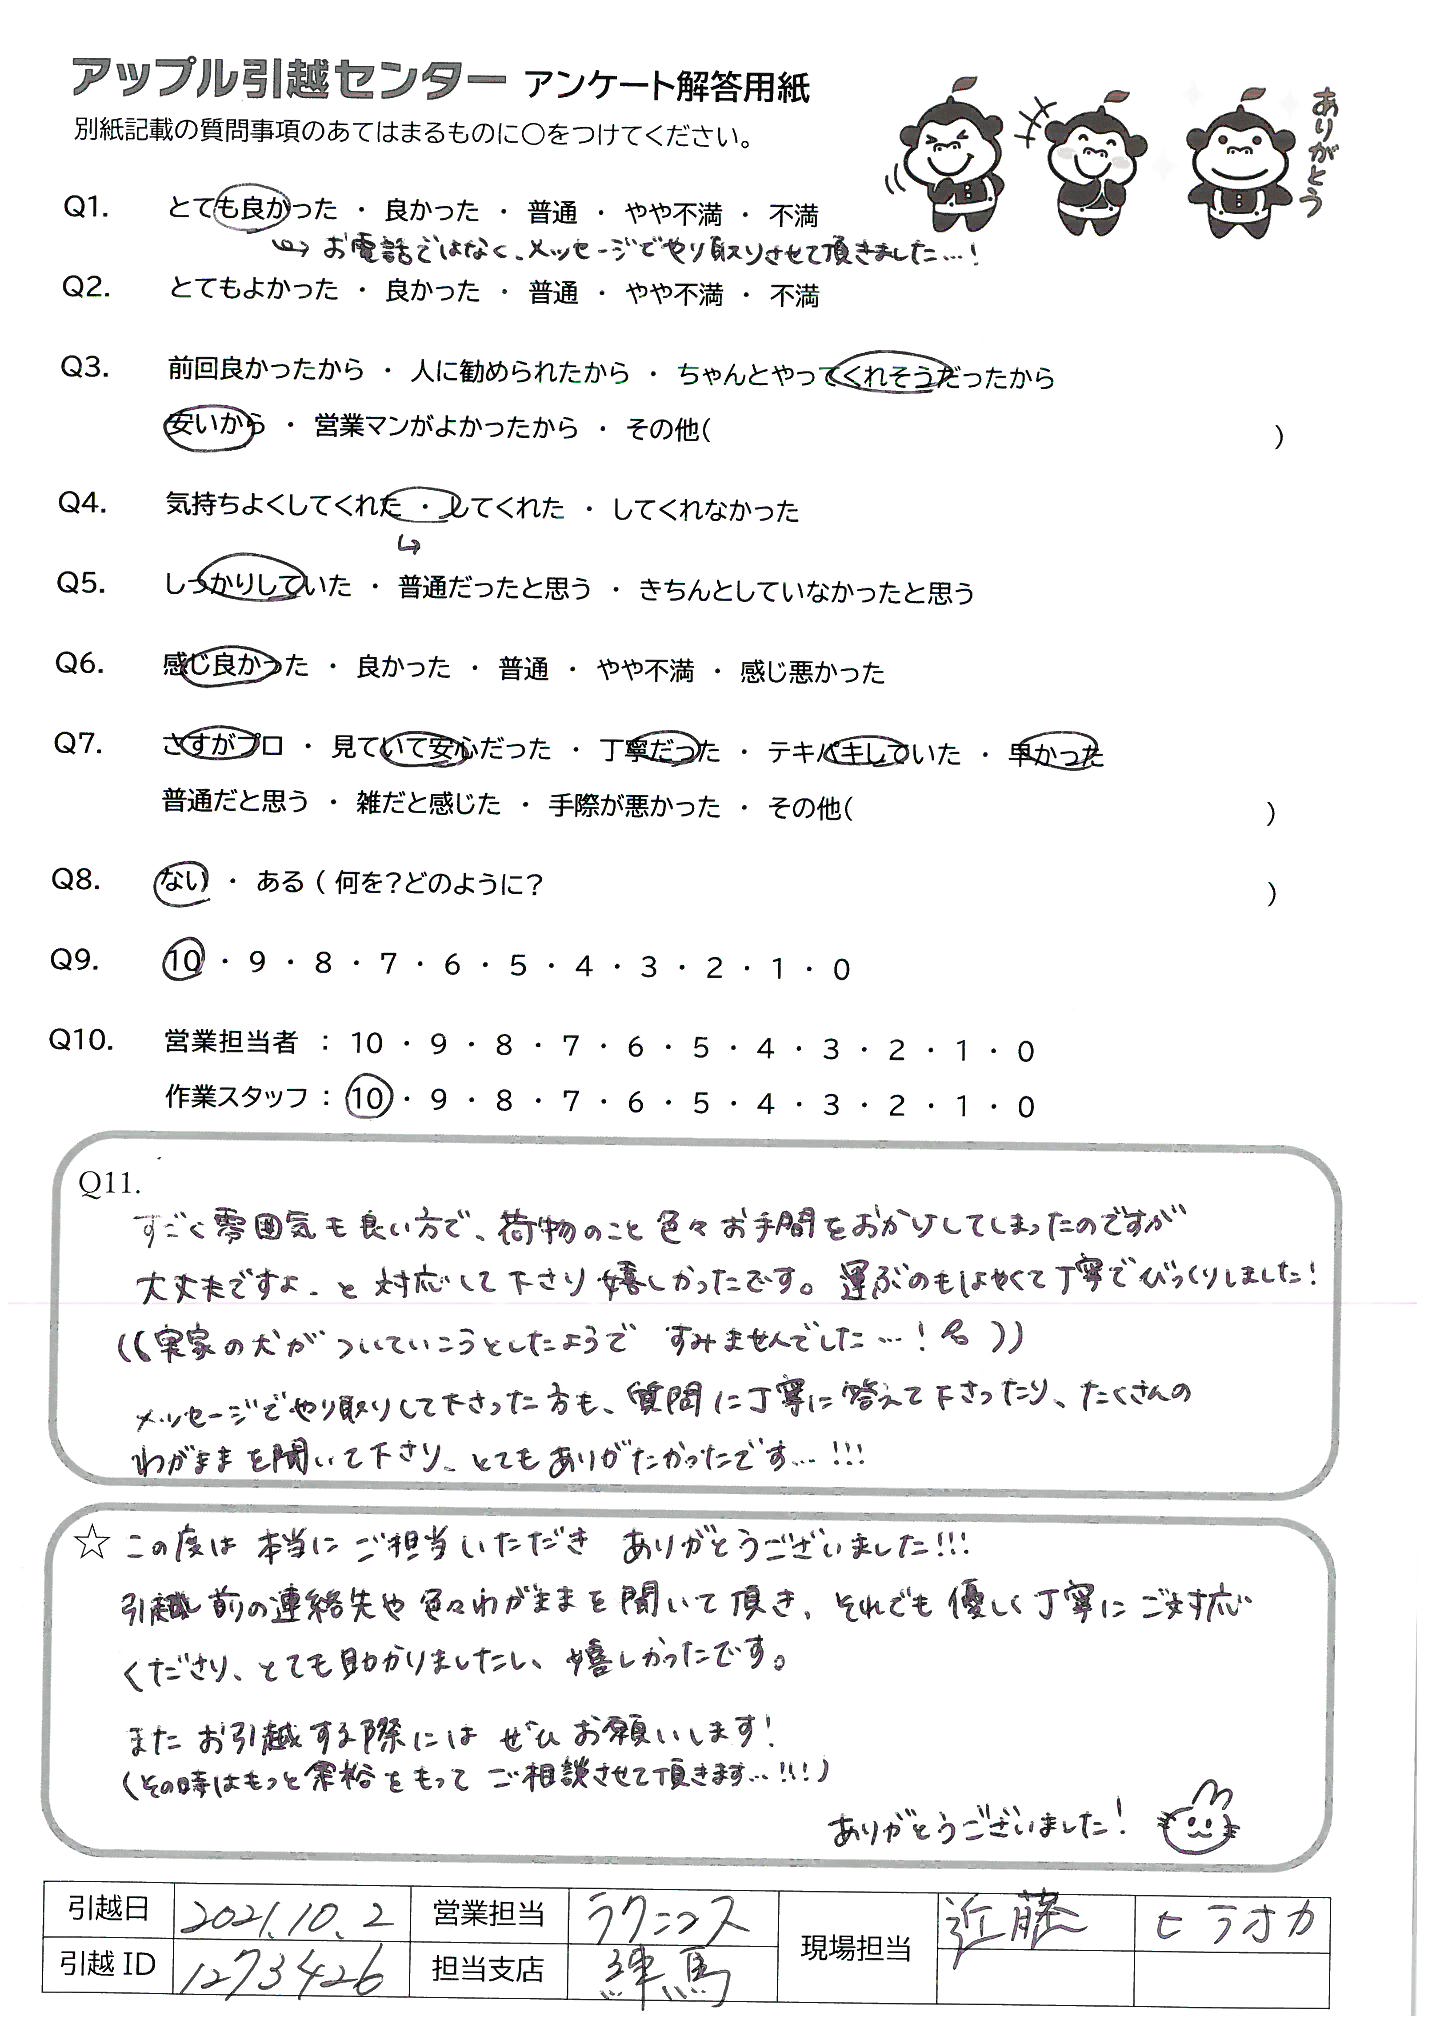 アップル引越センター アンケート解答用紙
ありがとう
別紙記載の質問事項のあてはまるものに○をつけてください。
Q1. とても良かった ・ 良かった ・ 普通 ・ やや不満 ・ 不満
↪ お電話ではなく、メッセージでやり取りさせて頂きました…!
Q2. とてもよかった ・ 良かった ・ 普通 ・ やや不満 ・ 不満
Q3. 前回良かったから ・ 人に勧められたから ・ ちゃんとやってくれそうだったから
安いから ・ 営業マンがよかったから ・ その他( )
Q4. 気持ちよくしてくれた ・ してくれた ・ してくれなかった
Q5. しっかりしていた ・ 普通だったと思う ・ きちんとしていなかったと思う
Q6. 感じ良かった ・ 良かった ・ 普通 ・ やや不満 ・ 感じ悪かった
Q7. さすがプロ ・ 見ていて安心だった ・ 丁寧だった ・ テキパキしていた ・ 早かった
普通だと思う ・ 雑だと感じた ・ 手際が悪かった ・ その他( )
Q8. ない ・ ある ( 何を?どのように? )
Q9. 10 ・ 9 ・ 8 ・ 7 ・ 6 ・ 5 ・ 4 ・ 3 ・ 2 ・ 1 ・ 0
Q10. 営業担当者 : 10 ・ 9 ・ 8 ・ 7 ・ 6 ・ 5 ・ 4 ・ 3 ・ 2 ・ 1 ・ 0
作業スタッフ : 10 ・ 9 ・ 8 ・ 7 ・ 6 ・ 5 ・ 4 ・ 3 ・ 2 ・ 1 ・ 0
Q11.
すごく雰囲気も良い方で、荷物のこと色々お手間をおかけしてしまったのですが
大丈夫ですよ、と対応して下さり嬉しかったです。運ぶのもはやくて丁寧でびっくりしました!
((実家の犬がついていこうとしたようで すみませんでした…!))
メッセージでやり取りして下さった方も、質問に丁寧に答えて下さったり、たくさんの
わがままを聞いて下さり、とてもありがたかったです…!!!
☆ この度は本当にご担当いただき ありがとうございました!!!
引越し前の連絡先や色々わがままを聞いて頂き、それでも優しく丁寧にご対応
くださり、とても助かりましたし、嬉しかったです。
またお引越する際にはぜひお願いします!
(その時はもっと余裕をもってご相談させて頂きます…!!!)
ありがとうございました!
引越日 2021.10.2 営業担当 ラクニコス 現場担当 近藤 ヒラオカ
引越ID 1273426 担当支店 練馬